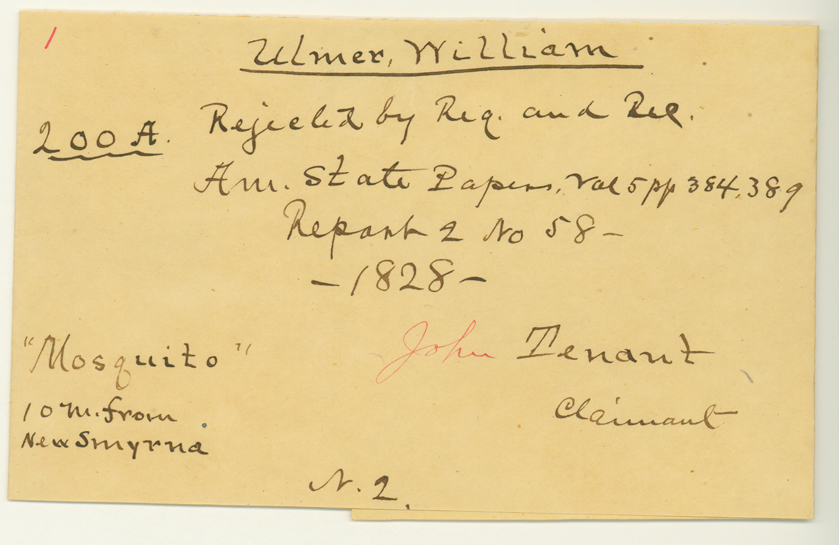 1
Ulmer, William
200 A. Rejected by Reg. and Rec.
Am. State Papers, Vol 5 pp 384, 389
Report 2 No 58 –
– 1828 –
"Mosquito" John Tenant
10 m. from Claimant
New Smyrna
N. 2.